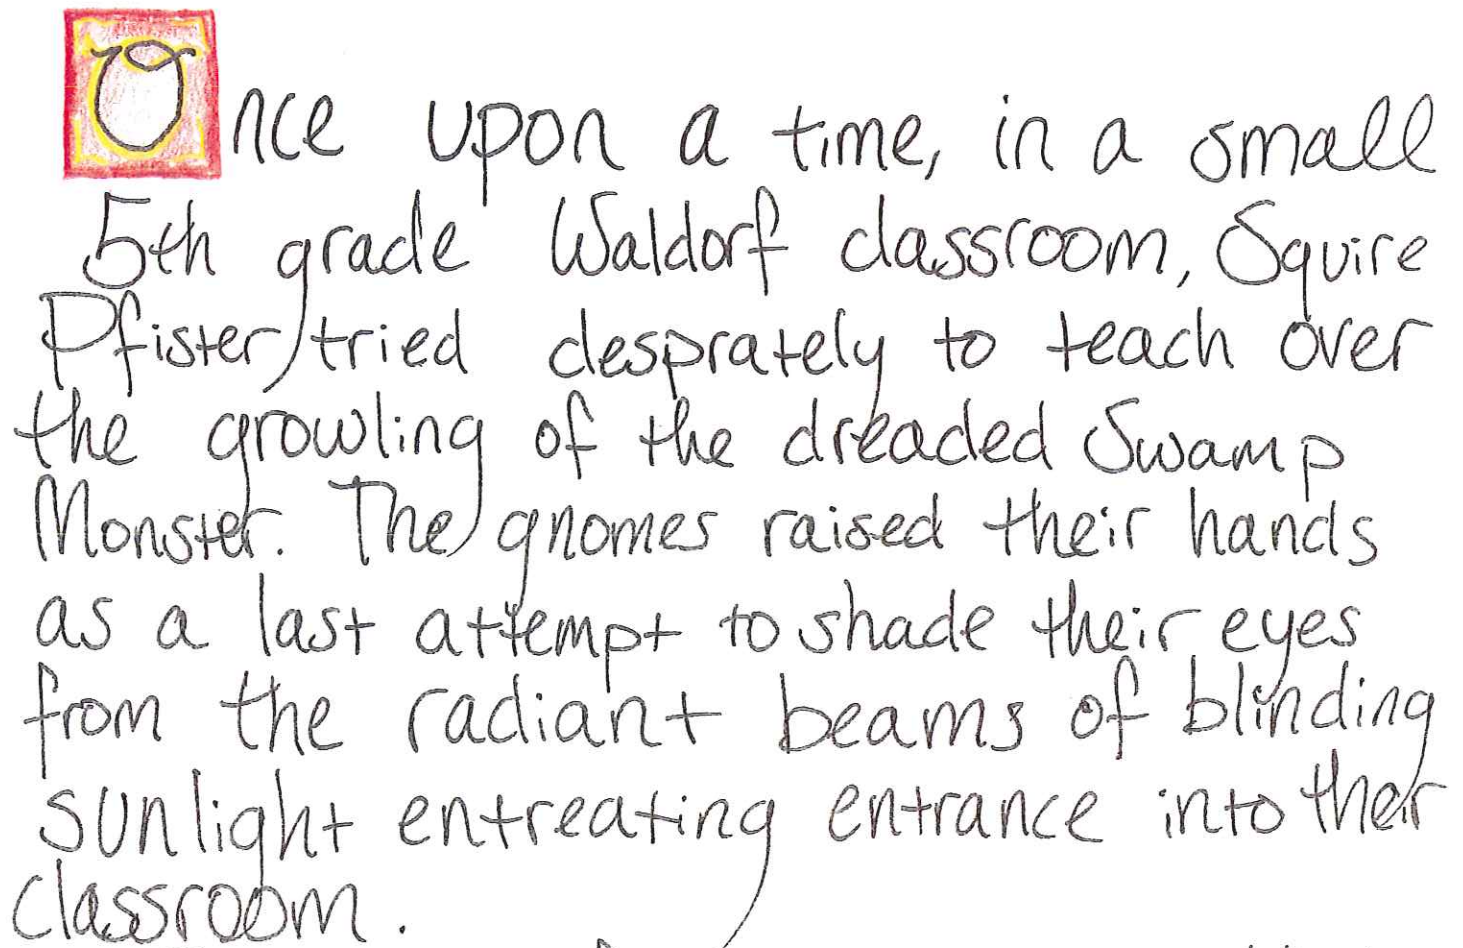 Once upon a time, in a small
5th grade Waldorf classroom, Squire
Pfister tried desprately to teach over
the growling of the dreaded Swamp
Monster. The gnomes raised their hands
as a last attempt to shade their eyes
from the radiant beams of blinding
sunlight entreating entrance into their
classroom.